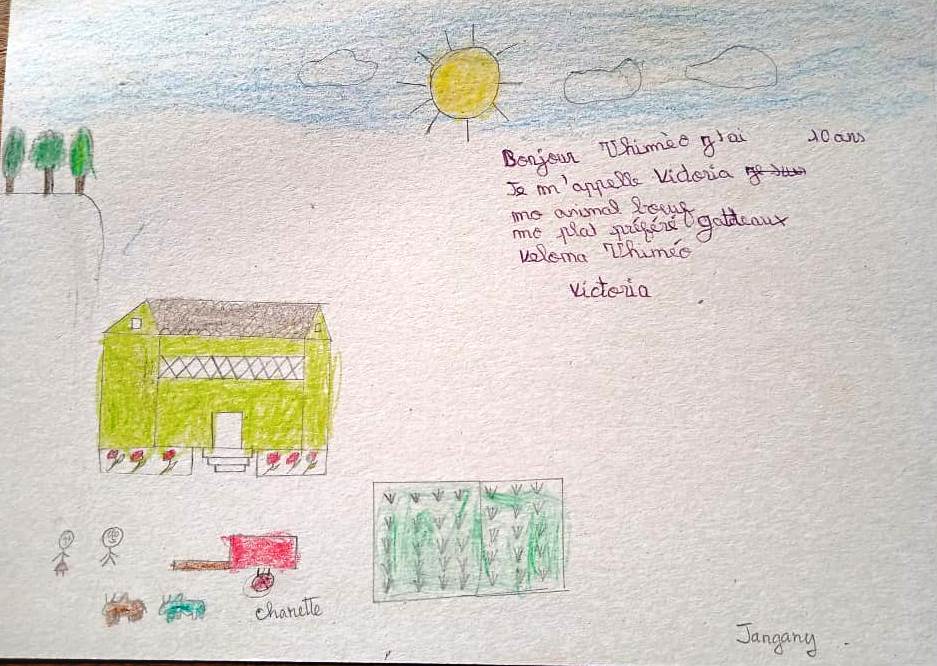 Bonjour Thiméo g'ai 10 ans
Je m'appelle Vidoria
mo animal boeuf
mo plat préféré gatdeaux
Veloma Thiméo
Victoria
charette
Jangany .